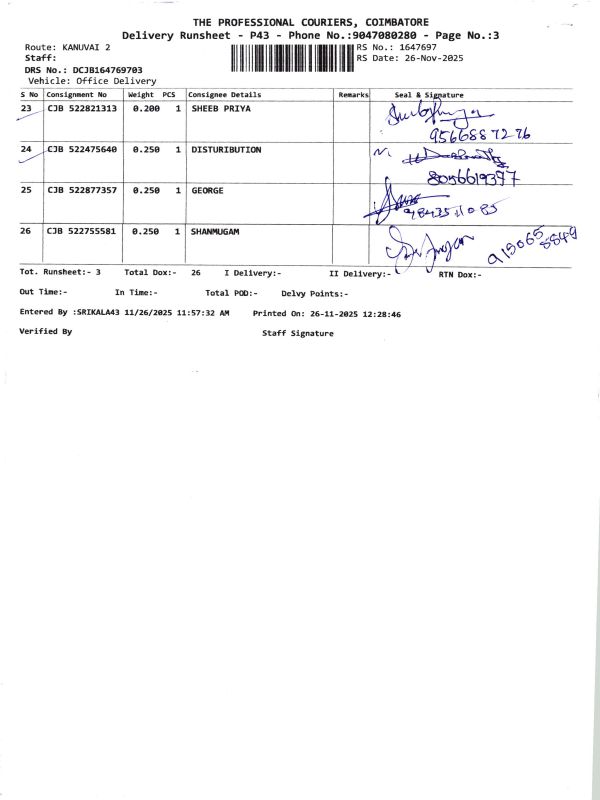 THE PROFESSIONAL COURIERS, COIMBATORE
Delivery Runsheet - P43 - Phone No.:9047080280 - Page No.:3
Route: KANUVAI 2 RS No.: 1647697
Staff: RS Date: 26-Nov-2025
DRS No.: DCJB164769703
Vehicle: Office Delivery
S No Consignment No Weight PCS Consignee Details Remarks Seal & Signature
23 CJB 522821313 0.200 1 SHEEB PRIYA
9566887276
24 CJB 522475640 0.250 1 DISTURIBUTION
8056619397
25 CJB 522877357 0.250 1 GEORGE
26 CJB 522755581 0.250 1 SHANMUGAM
Tot. Runsheet:- 3 Total Dox:- 26 I Delivery:- II Delivery:- RTN Dox:-
Out Time:- In Time:- Total POD:- Delvy Points:-
Entered By :SRIKALA43 11/26/2025 11:57:32 AM Printed On: 26-11-2025 12:28:46
Verified By Staff Signature